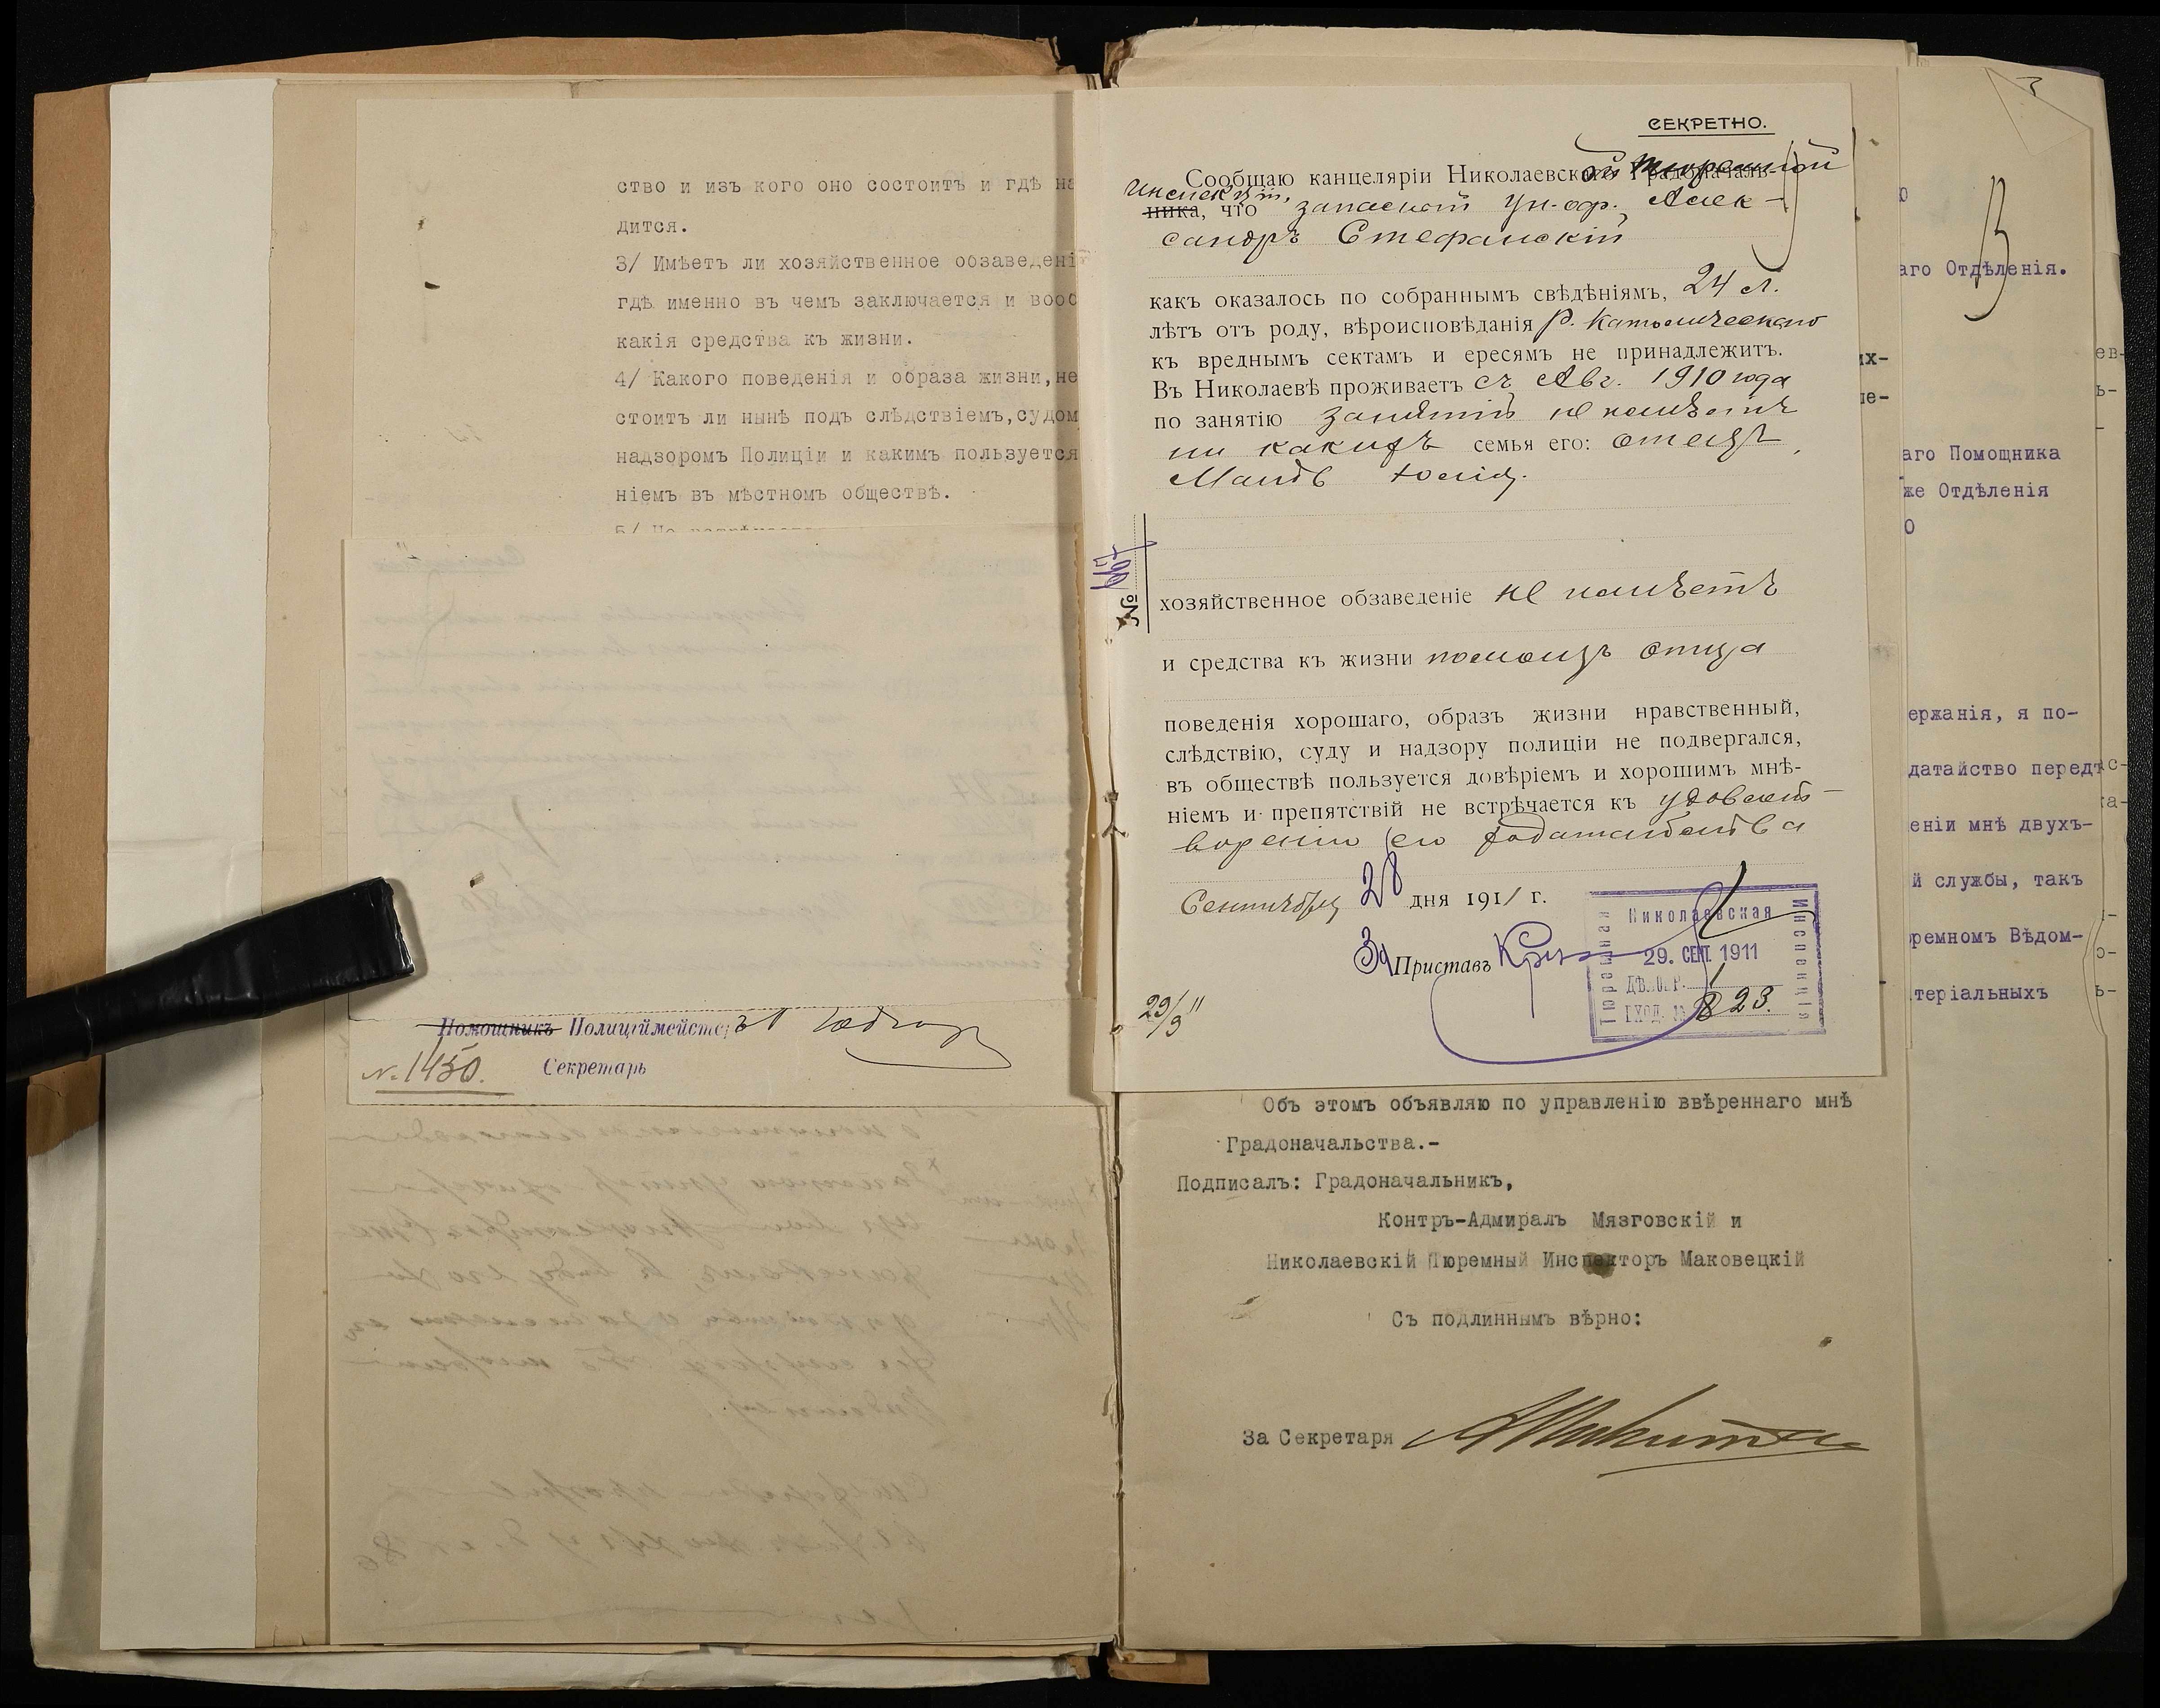 ство и изъ кого оно состоитъ и гдѣ на
дится.
3/ Имѣетъ ли хозяйственное обзаведені
гдѣ именно въ чемъ заключается и вооб
какія средства къ жизни.
4/ Какого поведенія и образа жизни, не
стоитъ ли нынѣ подъ слѣдствіемъ, судом
надзоромъ Полиціи и какимъ пользуется
ніемъ въ мѣстномъ обществѣ.
Помощникъ Полиціймейстеръ
№ 1450.
Секретарь
СЕКРЕТНО.
Сообщаю канцеляріи Николаевской Тюремной Градоначаль-
Инспекціи,
ника, что запасной ун.-оф. Алек-
сандръ Стефанскій
какъ оказалось по собраннымъ свѣдѣніямъ, 24 л.
лѣтъ отъ роду, вѣроисповѣданія р. католическаго
къ вреднымъ сектамъ и ересямъ не принадлежитъ.
Въ Николаевѣ проживаетъ съ Авг. 1910 года
по занятію занятій не имѣетъ
ни какихъ семья его: отецъ,
мать
№ 667
хозяйственное обзаведеніе не имѣетъ
и средства къ жизни помощь отца
поведенія хорошаго, образъ жизни нравственный,
слѣдствію, суду и надзору полиціи не подвергался,
въ обществѣ пользуется довѣріемъ и хорошимъ мнѣ-
ніемъ и препятствій не встрѣчается къ удовлет-
воренію его ходатайства
Сентября 28 дня 1911 г.
За Приставъ
29/9 11
Николаевская
Тюремная
Инспекція
29. СЕНТ. 1911
ДѢЛО Р. 1
ВХОД. № 823.
Объ этомъ объявляю по управленію ввѣреннаго мнѣ
Градоначальства.-
Подписалъ: Градоначальникъ,
Контръ-Адмиралъ Мязговскій и
Николаевскій Тюремный Инспекторъ Маковецкій
Съ подлиннымъ вѣрно:
За Секретаря
3
аго Отдѣленія.
их-
ле-
аго Помощника
же Отдѣленія
ержанія, я по-
датайство передъ
еніи мнѣ двухъ-
й службы, такъ
ремномъ Вѣдом-
теріальныхъ